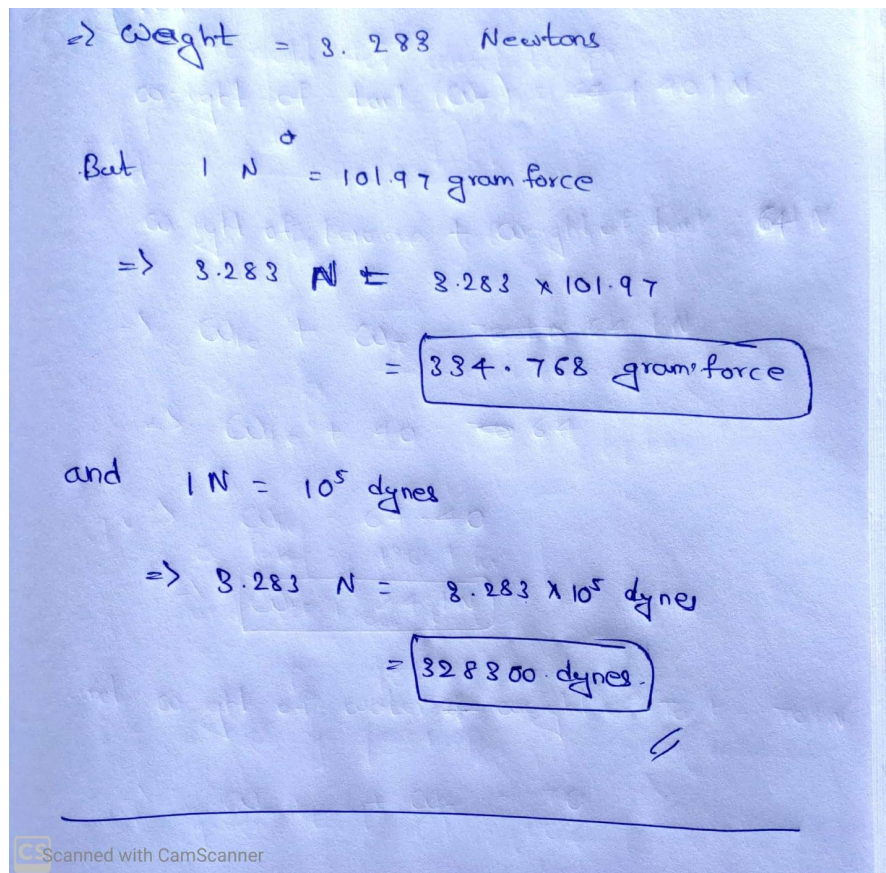 => Weight = 3.283 Newtons
But 1 N = 101.97 gram force
=> 3.283 N = 3.283 x 101.97
= 334.768 gram force
and 1 N = 10⁵ dynes
=> 3.283 N = 3.283 x 10⁵ dynes
= 328300 dynes.
CS Scanned with CamScanner